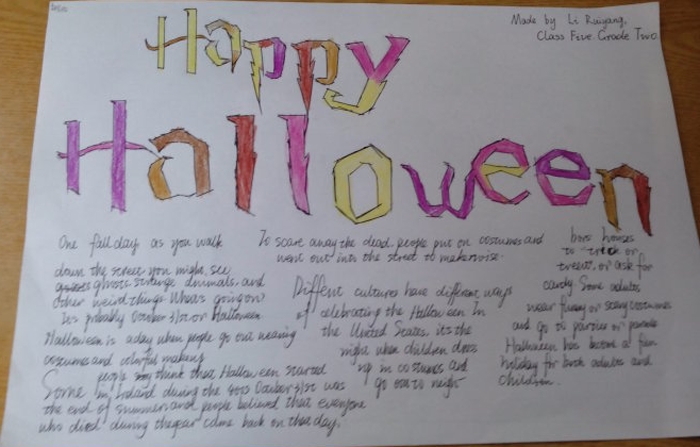 Made by Li Ruiyang,
Class Five Grade Two
Happy
Halloween
One fall day as you walk
down the street you might see
ghosts strange animals, and
other weird things. What's going on?
It's probably October 31st or Halloween
Halloween is a day when people go out wearing
costumes and colorful makeup
Some people think that Halloween started
in Ireland during the October 31st was
the end of summer and people believed that everyone
who died during the year came back on that day.
To scare away the dead, people put on costumes and
went out into the street to make noise.
Diffent cultures have different ways
of celebrating the Halloween In
the United States. it's the
night when children dress
up in costumes and
go out to neigh
bors houses
to trick or
treat, or ask for
candy. Some adults
wear funny or scary costumes
and go to parties or parade
Halloween has become a fun
holiday for both adults and
children.